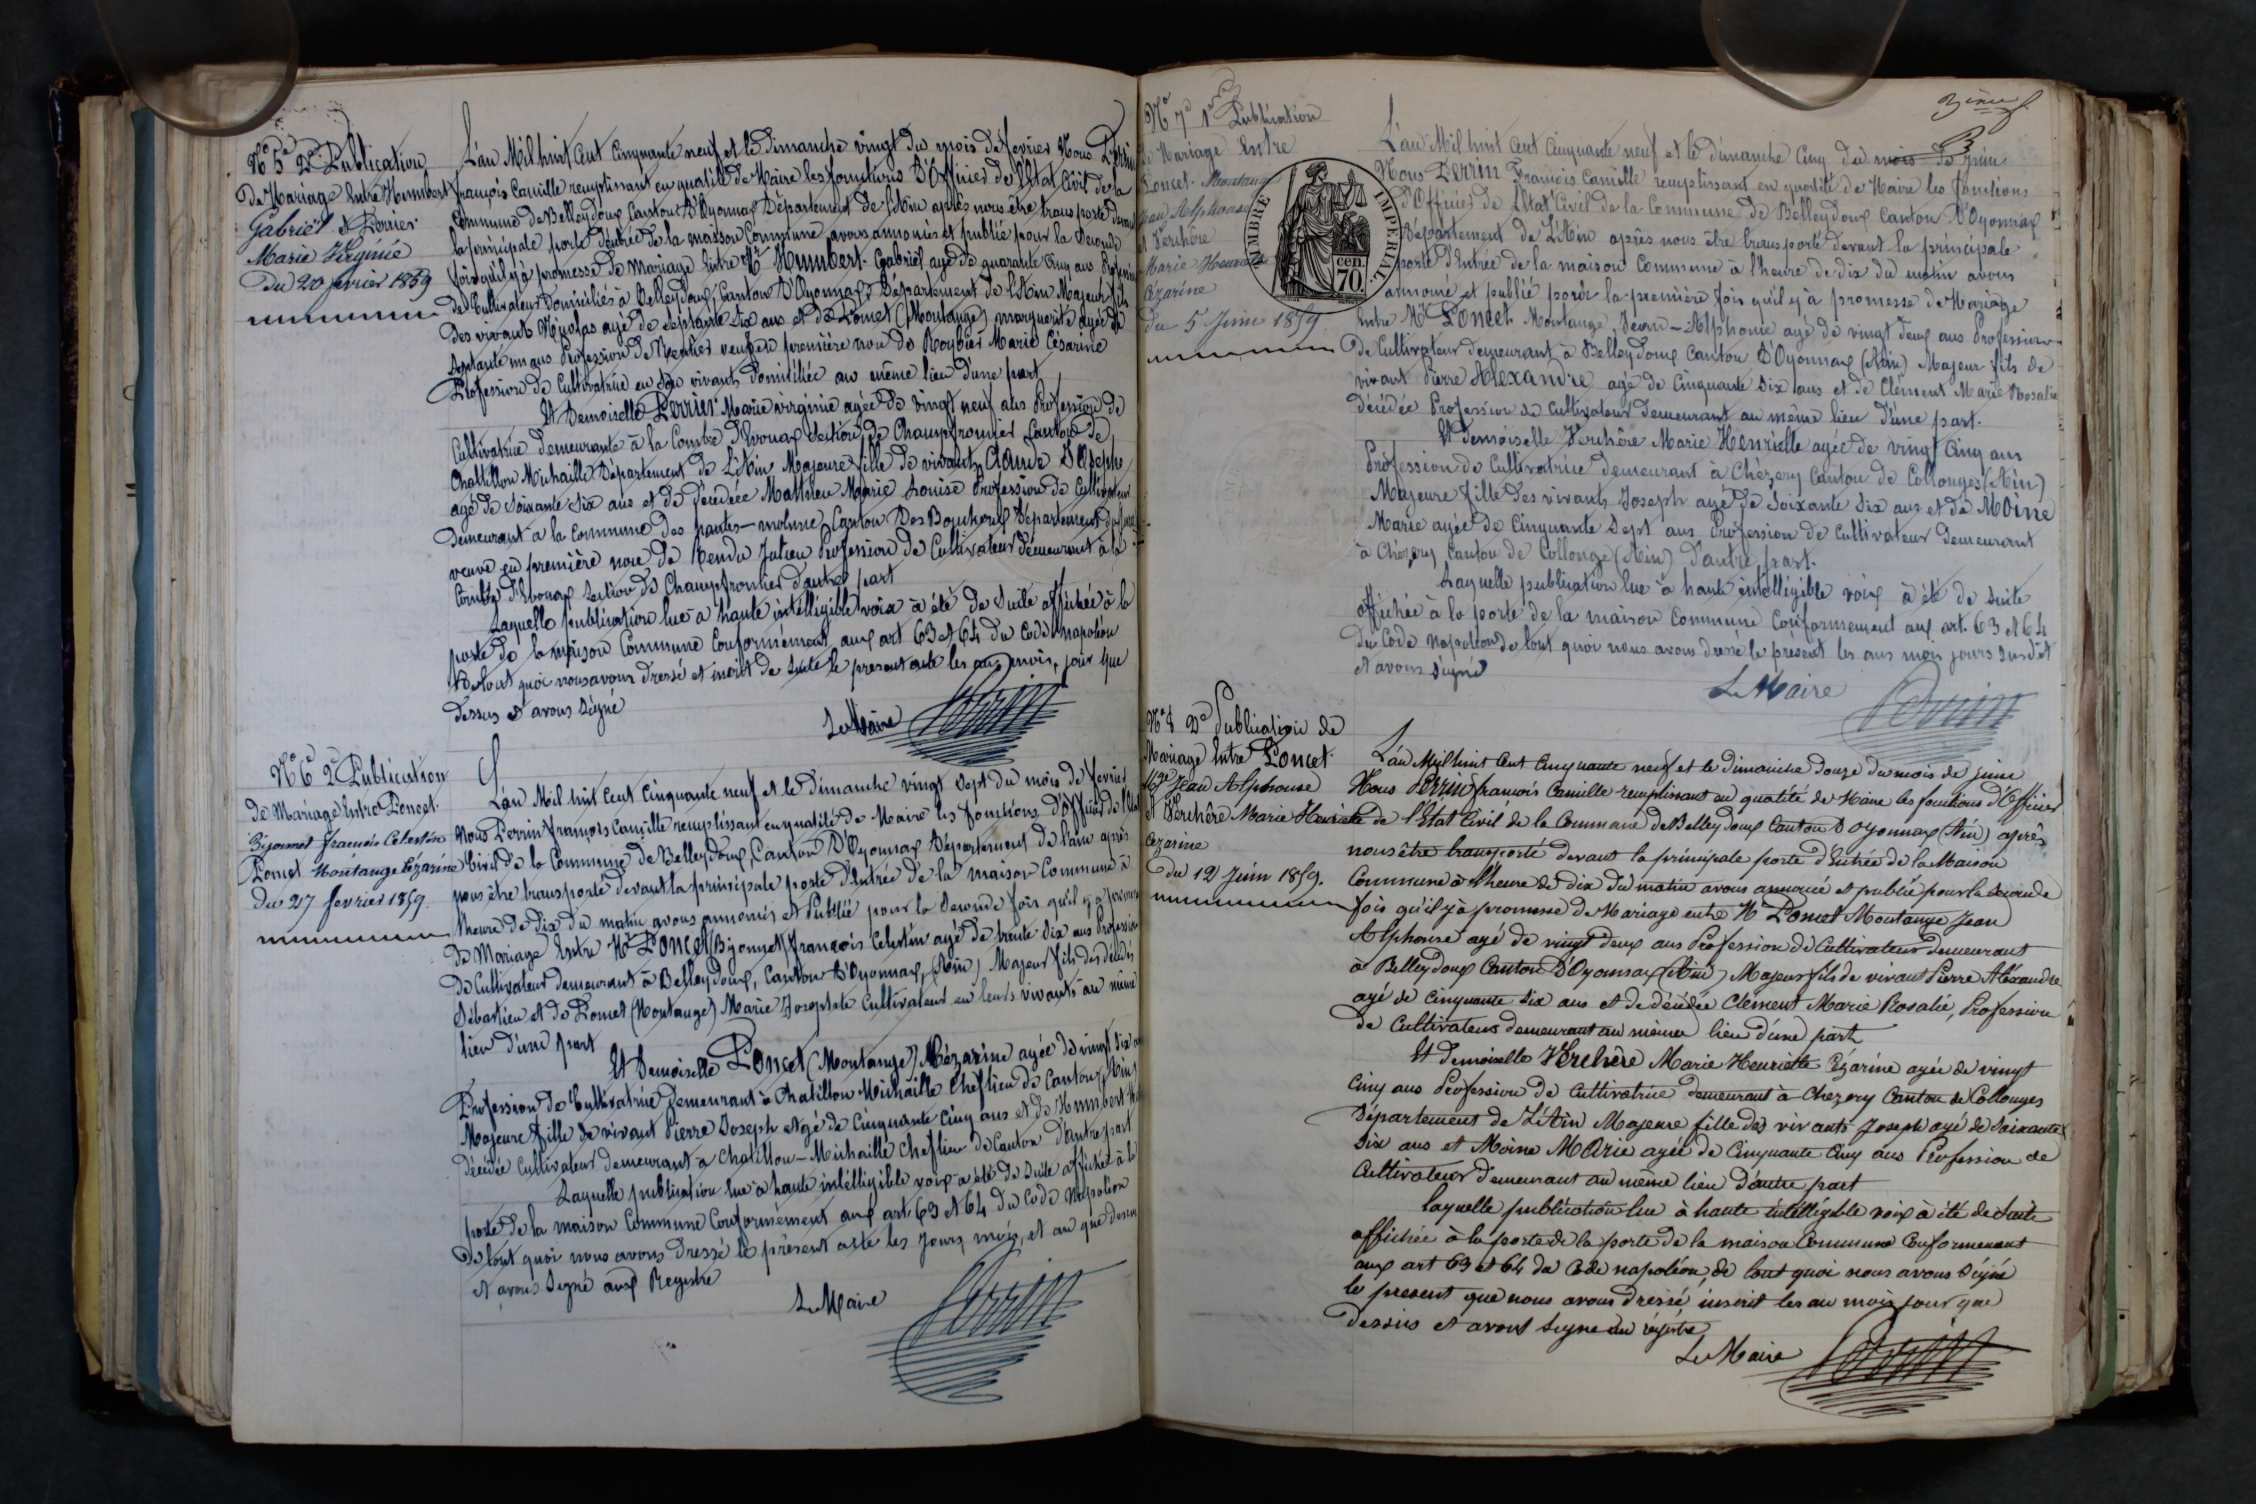 N° 5 2e Publication
De Mariage Entre Humbert
Gabriel et Perrier
Marie Virginie
Du 20 fevrier 1859
L'an Mil huit Cent Cinquante neuf et le Dimanche vingt du mois de fevrier Nous Perrin
françois Camille remplissant en qualité de Maire les fonctions D'Officier de l'Etat Civil de la
Commune de Belleydoux Canton D'Oyonnax Département de l'Ain après nous être transporté devant
la principale porte d'entrée de la maison Commune, avons annoncés et publié pour la Seconde
fois qu'il y à promesse de Mariage Entre Mr Humbert Gabriel agé de quarante Cinq ans Profession
de Cultivateur Domiciliés à Belleydoux, Canton D'Oyonnax Département de l'Ain Majeur fils
Des vivants Nicolas agé de Septante Six ans et de Poncet (Montange) marguerite agée de
Septante un ans Profession de Rentier veuf en première noce de Roybier Marie Césarine
Profession de Cultivatrice en son vivant Domiciliée au même lieu d'une part
Et Demoiselle Perrier Marie virginie agée de vingt neuf ans Profession de
Cultivatrice demeurante à la Combe D'Evouax Section de Champfromier Canton de
Chatillon Michaille Département de L'Ain Majeure fille de vivant Claude Joseph
agé de Soixante Six ans et de décédée Matthieu Marie Louise Profession de Cultivateur
demeurant à la Commune des hautes-molune, Canton Des Bouchoux Département du Jura
veuve en première noce de Rendu Julien Profession de Cultivateur demeurant à la
Combe D'Evouax Section de Champfromier d'autre part
Laquelle publication lue à haute intélligible voix à été de Suite affichée à la
porte de la maison Commune Conformément aux art 63 et 64 du Code napoléon
De tout quoi nous avons dressé et inscrit de Suite le présent acte les ans, mois, jour que
dessus et avons Signé
Le Maire Perrin
N° 6 2e Publication
de Mariage Entre Poncet
Byonnet francois Celestin
Poncet Montange Cézarine
Du 27 fevrier 1859.
L'an Mil huit Cent Cinquante neuf et le Dimanche vingt Sept du mois de fevrier
Nous Perrin françois Camille remplissant en qualité de Maire les fonctions d'Officier de l'Etat
Civil de la Commune de Belleydoux, Canton D'Oyonnax Département de l'Ain après
nous être transporté devant la principale porte d'Entrée de la maison Commune à
l'heure de Dix du matin avons annoncés et Publié pour la Seconde fois qu'il y a promesse
de Mariage Entre Mr Poncet (Byonnet) françois Celestin agé de trente Six ans Profession
de Cultivateur demeurant à Belleydoux, Canton D'Oyonnax, (Ain) Majeur fils des décédés
Sébastien et de Poncet (Montange) Marie Josephte Cultivateurs en leurs vivants au même
lieu d'une part
Et Demoiselle Poncet (Montange) Cézarine agée de vingt Six ans
Profession de Cultivatrice Demeurant à Chatillon Michaille Chef lieu de Canton (Ain)
Majeure fille de vivant Pierre Joseph Agé de Cinquante Cinq ans et de Humbert
Décédée Cultivateur demeurant à Chatillon-Michaille Chef lieu de Canton d'autre part
Laquelle publication lue à haute intélligible voix à été de Suite affichée à la
porte de la maison Commune Conformément aux art 63 et 64 du Code Napoléon
De tout quoi nous avons dressé le présent acte les jours, mois, et an que dessus
et avons Signé aux Registre
Le Maire Perrin
3ème
N° 7 1re Publication
de Mariage Entre
Poncet Montange
Jean Alphonse
et Verchère
Marie Henriette
Cézarine
du 5 Juin 1859
TIMBRE IMPERIAL
70 cen.
L'an Mil huit Cent Cinquante neuf et le dimanche Cinq du mois de Juin
Nous Perrin François Camille remplissant en qualité de Maire les fonctions
d'Officier de l'Etat Civil de la Commune de Belleydoux Canton D'Oyonnax
Département de L'Ain après nous être transporté devant la principale
porte d'Entrée de la maison Commune à l'heure de dix du matin avons
annoncé et publié pour la première fois qu'il y à promesse de Mariage
Entre Mr Poncet Montange Jean-Alphonse agé de vingt deux ans Profession
de Cultivateur demeurant à Belleydoux Canton D'Oyonnax (Ain) Majeur fils de
vivant Pierre Alexandre agé de Cinquante Six ans et de Clément Marie Rosalie
décédée Profession de Cultivateur demeurant au même lieu d'une part.
Et demoiselle Verchère Marie Henriette agée de vingt Cinq ans
Profession de Cultivatrice demeurant à Chézery Canton de Collonges (Ain)
Majeure fille des vivants Joseph agé de Soixante Six ans et de Moine
Marie agée de Cinquante Sept ans Profession de Cultivateur demeurant
à Chézery Canton de Collonge (Ain) d'autre part.
Laquelle publication lue à haute intélligible voix à été de Suite
affichée à la porte de la maison Commune Conformement aux art. 63 et 64
du Code Napoléon de tout quoi nous avons dressé le présent les ans mois jours Susdit
et avons Signé
Le Maire Perrin
N° 8 2e Publication de
Mariage Entre Poncet
Mge Jean Alphonse
et Verchère Marie Henriette
Cézarine
du 12 Juin 1859.
L'an Mil huit Cent Cinquante neuf et le Dimanche Douze du mois de juin
Nous Perrin françois Camille remplissant en qualité de Maire les fonctions d'Officier
de l'Etat Civil de la Commune de Belleydoux Canton D'Oyonnax (Ain) après
nous être transporté devant la principale porte d'Entrée de la Maison
Commune à l'heure de dix du matin avons annoncé et publié pour la Seconde
fois qu'il y à promesse de Mariage entre Mr Poncet Montange Jean
Alphonse agé de vingt deux ans Profession de Cultivateur demeurant
à Belleydoux Canton D'Oyonnax (Ain) Majeur fils de vivant Pierre Aléxandre
agé de Cinquante Six ans et de décédée Clément Marie Rosalie, Profession
de Cultivateurs demeurant au même lieu d'une part
Et Demoiselle Verchère Marie Henriette Cézarine agée de vingt
Cinq ans Profession de Cultivatrice demeurant à Chezery Canton de Collonges
Département de L'Ain Majeure fille des vivants Joseph agé de Soixante
Six ans et Moine Marie agée de Cinquante Cinq ans Profession de
Cultivateur demeurant au même lieu d'autre part
Laquelle publication lue à haute intélligible voix à été de Suite
affichée à la porte de la porte de la maison Commune Conformement
aux art 63 et 64 du Code napoléon, de tout quoi nous avons Signé
le present que nous avons dressé inscrit les an mois jour que
dessus et avons Signé au régistre
Le Maire Perrin